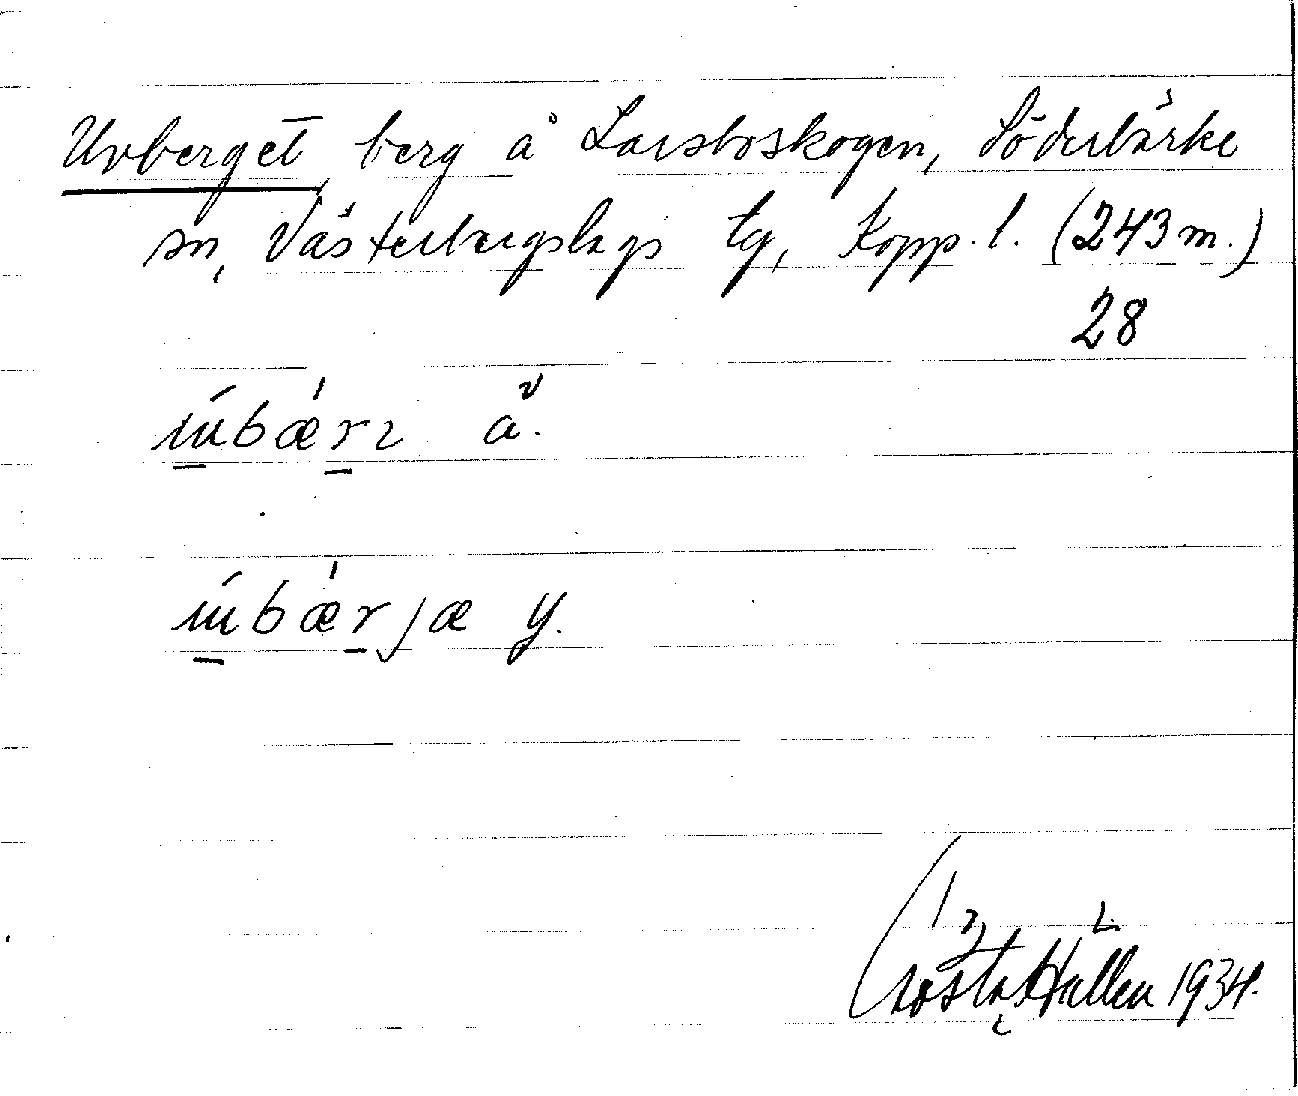 Uvberget, berg å Larsboskogen, Söderbärke
sn, Västerbergslags tg, Kopp. l. (243 m.)
28
úbær̲ı ǎ.
úbær̲jæ y.
Gösta Hallen 1934.